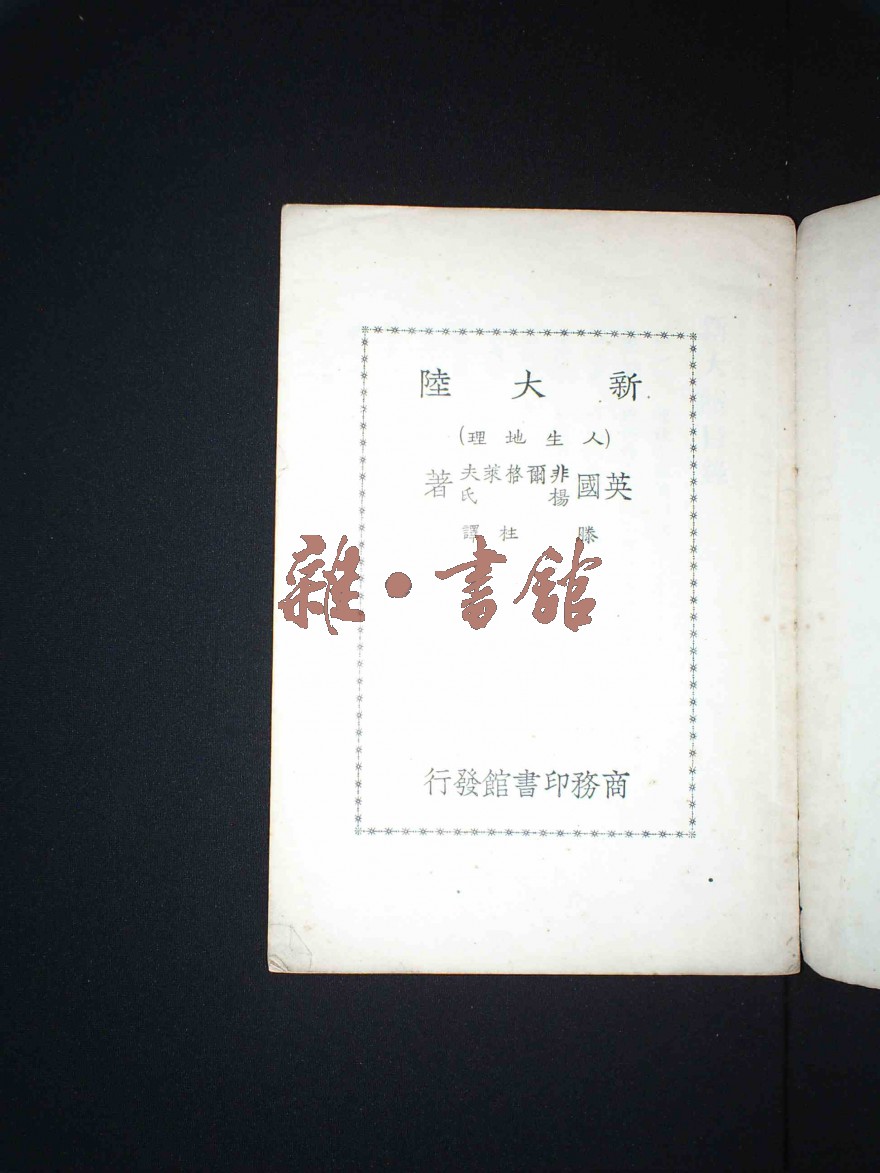 新大陸
(人生地理)
英國非爾格萊夫楊氏著
滕柱譯
雜·書館
商務印書館發行